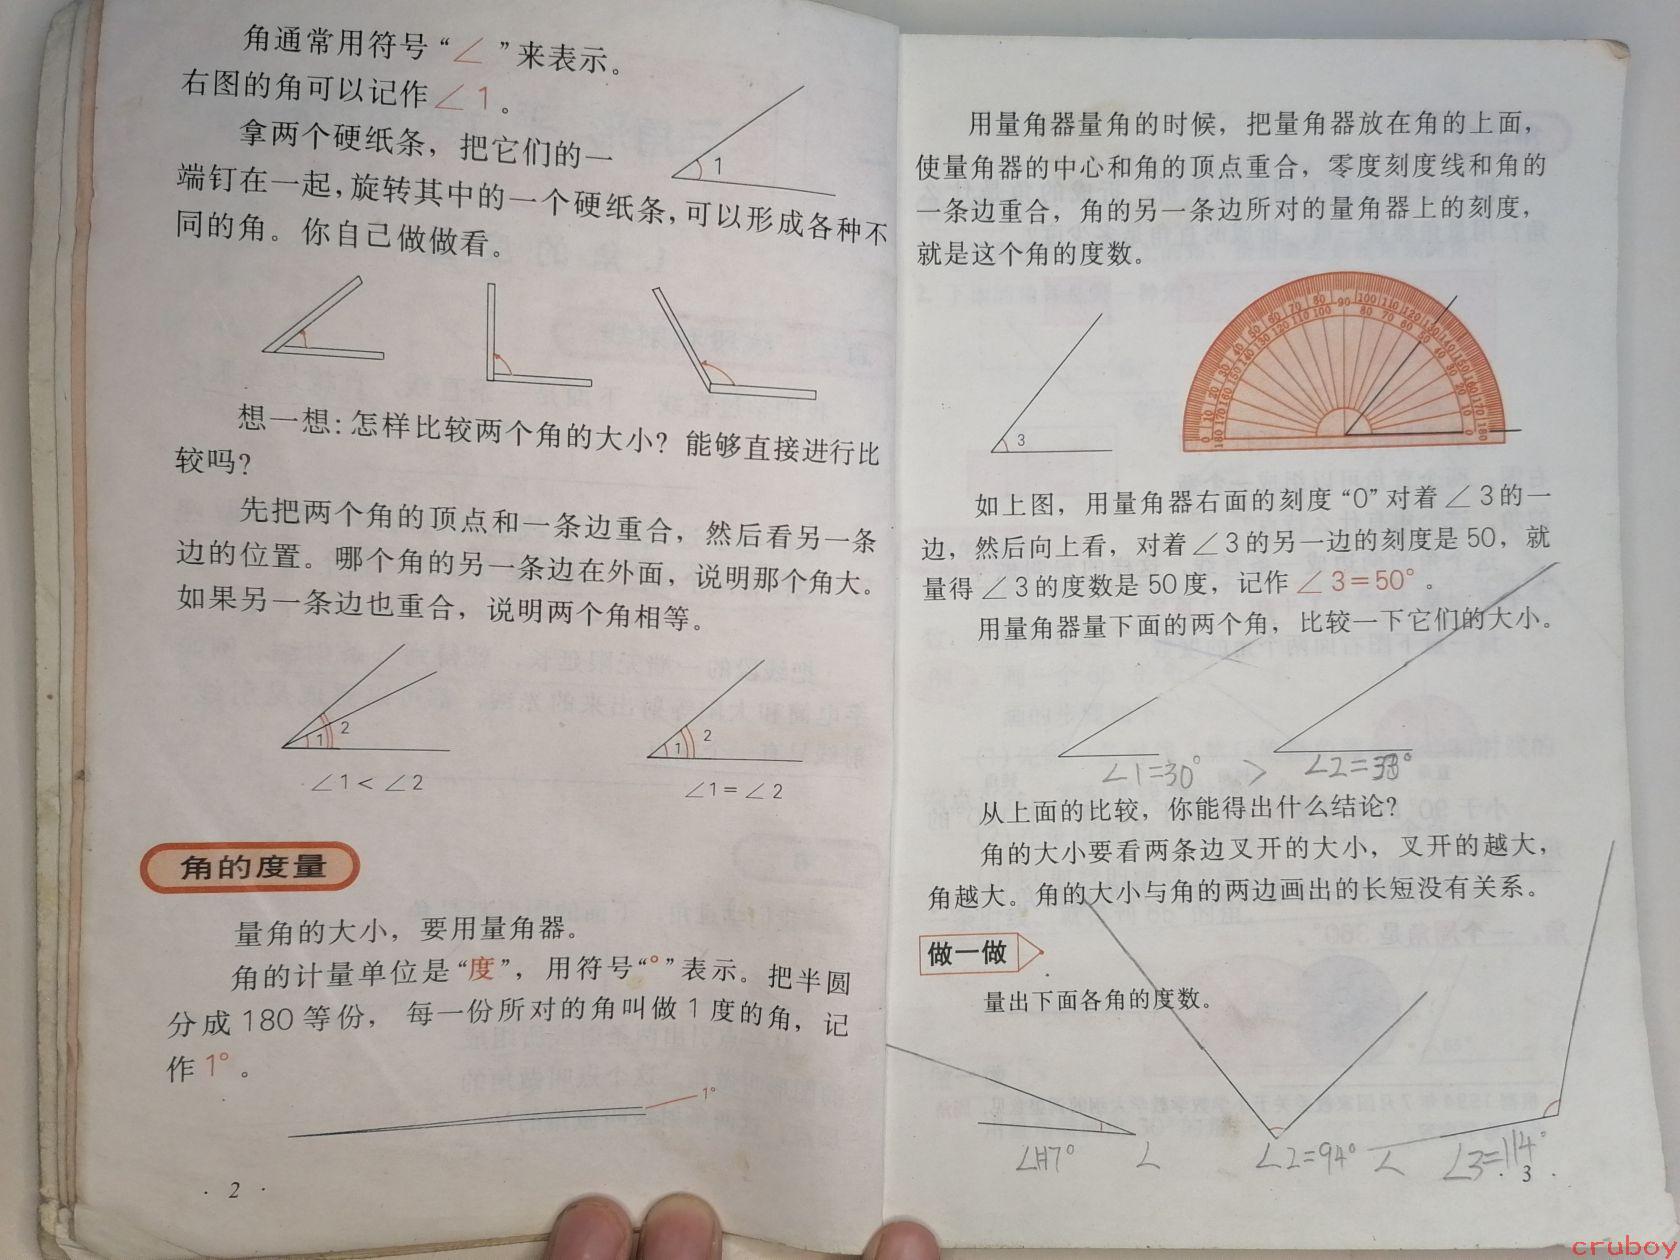 角通常用符号“∠”来表示。
右图的角可以记作∠1。
1
拿两个硬纸条，把它们的一
端钉在一起，旋转其中的一个硬纸条，可以形成各种不
同的角。你自己做做看。
想一想：怎样比较两个角的大小？能够直接进行比
较吗？
先把两个角的顶点和一条边重合，然后看另一条
边的位置。哪个角的另一条边在外面，说明那个角大。
如果另一条边也重合，说明两个角相等。
1 2
1 2
∠1＜∠2
∠1＝∠2
角的度量
量角的大小，要用量角器。
角的计量单位是“度”，用符号“°”表示。把半圆
分成180等份，每一份所对的角叫做1度的角，记
作1°。
1°
· 2 ·
用量角器量角的时候，把量角器放在角的上面，
使量角器的中心和角的顶点重合，零度刻度线和角的
一条边重合，角的另一条边所对的量角器上的刻度，
就是这个角的度数。
3
0 10 20 30 40 50 60 70 80 90 100 110 120 130 140 150 160 170 180
180 170 160 150 140 130 120 110 100 80 70 60 50 40 30 20 10 0
如上图，用量角器右面的刻度“0”对着∠3的一
边，然后向上看，对着∠3的另一边的刻度是50，就
量得∠3的度数是50度，记作∠3＝50°。
用量角器量下面的两个角，比较一下它们的大小。
∠1=30° > ∠2=33°
从上面的比较，你能得出什么结论？
角的大小要看两条边叉开的大小，叉开的越大，
角越大。角的大小与角的两边画出的长短没有关系。
做一做
量出下面各角的度数。
∠2=94°
∠3=114°
· 3 ·
cruboy